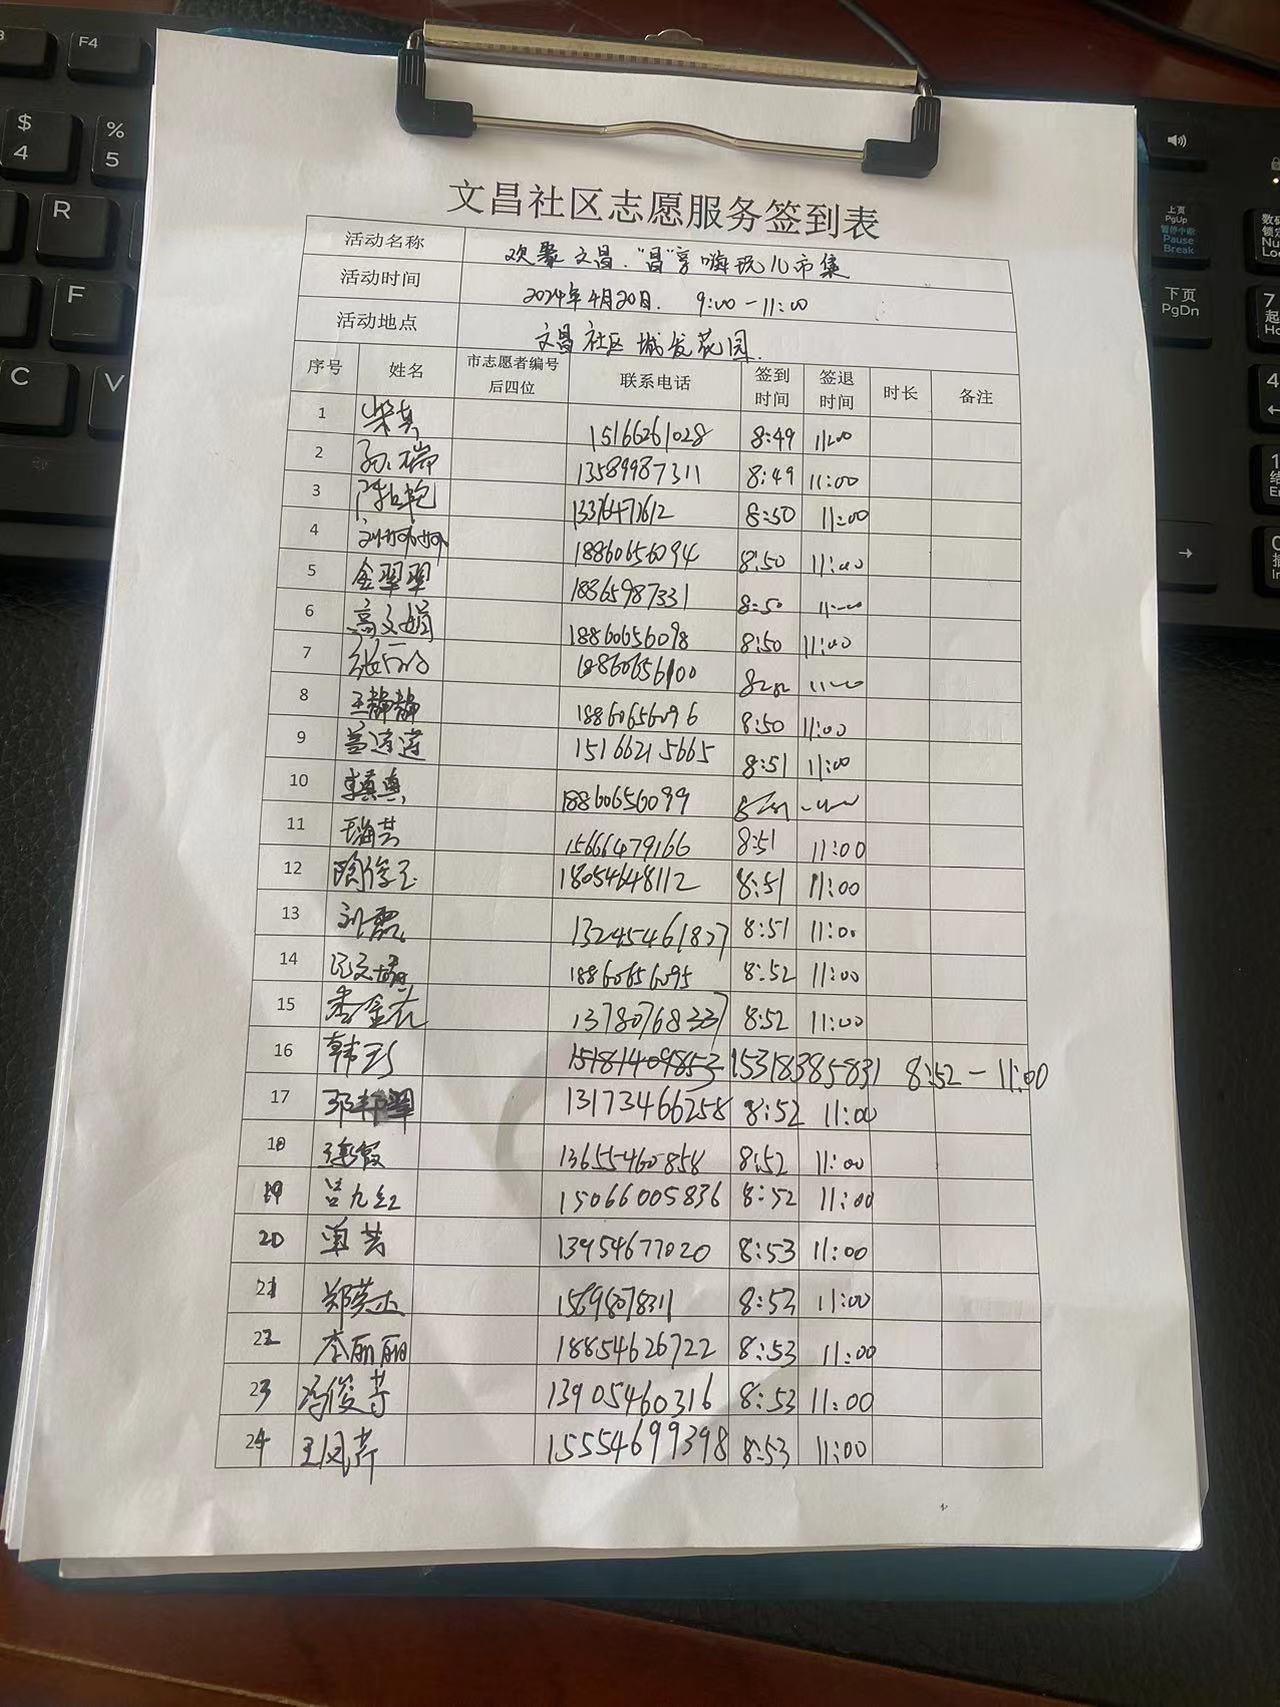 文昌社区志愿服务签到表
活动名称 欢聚文昌.“昌”享嗨玩儿市集
活动时间 2024年4月20日. 9:00-11:00
活动地点 文昌社区城发花园.
序号 姓名 市志愿者编号后四位 联系电话 签到时间 签退时间 时长 备注
1 15166261028 8:49 11:00
2 孙瑞 13589987311 8:49 11:00
3 8:50 11:00
4 18860656094 8:50 11:00
5 金翠翠 18865987331 8:50 11:00
6 高文娟 18860656098 8:50 11:00
7 18860656100 11:00
8 王静静 18860656096 8:50 11:00
9 15166215665 8:51 11:00
10 李真真 18860656099
11 15666479166 8:51 11:00
12 18054648112 8:51 11:00
13 刘霞 8:51 11:00
14 18860656095 8:52 11:00
15 李金花 13780768337 8:52 11:00
16 韩 15318385831 8:52-11:00
17 13173466258 8:52 11:00
18 13655460858 8:52 11:00
19 吕九红 15066005836 8:52 11:00
20 单芸 13954677020 8:53 11:00
21 郑英杰 8:53 11:00
22 李丽丽 18854626722 8:53 11:00
23 冯俊芳 13905460316 8:53 11:00
24 王凤芹 15554699398 8:53 11:00
F4
$
4
%
5
R
F
C
V
上页
PgUp
暂停中断
Pause
Break
下页
PgDn